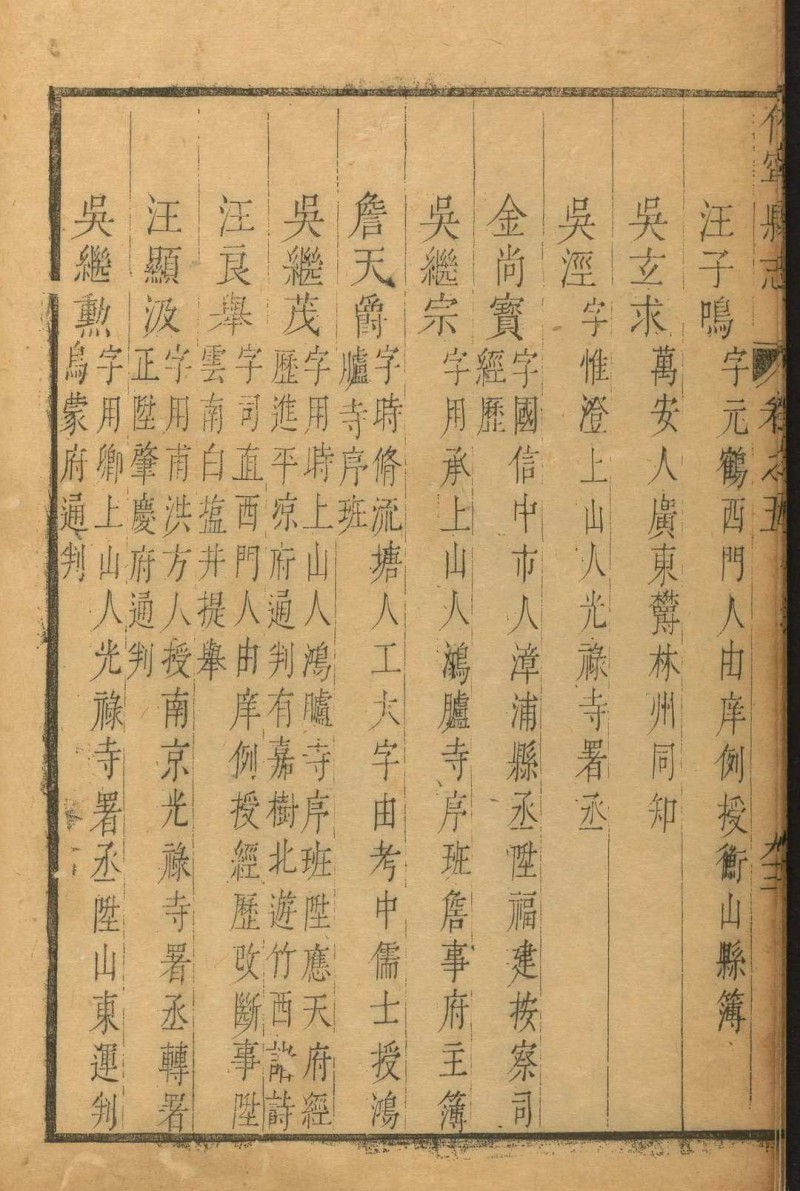 休寧縣志 卷之五
汪子鳴 字元鶴西門人由庠例授衡山縣簿
吳玄求 萬安人廣東欝林州同知
吳涇 字惟澄上山人光祿寺署丞
金尚寳 字國信中市人漳浦縣丞陞福建按察司
經歷
吳繼宗 字用承上山人鴻臚寺序班詹事府主簿
詹天爵 字時脩流塘人工大字由考中儒士授鴻
臚寺序班
吳繼茂 字用時上山人鴻臚寺序班陞應天府經
歷進平凉府通判有嘉樹北遊竹西詩
汪良舉 字司直西門人由庠例授經歷改斷事陞
雲南白塩井提舉
汪顯汲 字用甫洪方人授南京光祿寺署丞轉署
正陞肇慶府通判
吳繼勲 字用卿上山人光祿寺署丞陞山東運判
烏蒙府通判